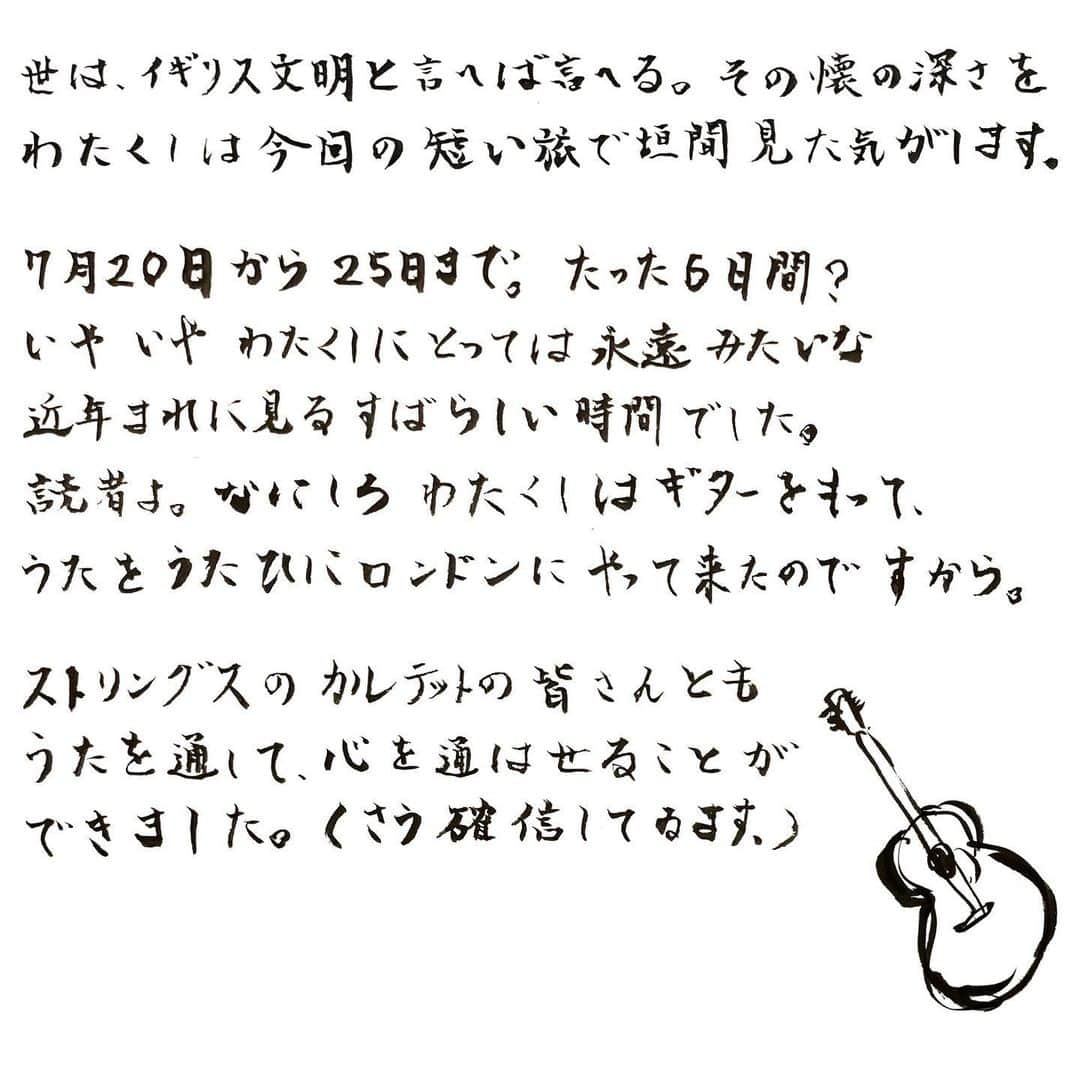 世は、イギリス文明と言へば言へる。その懐の深さを
わたくしは今回の短い旅で垣間見た気がします。
7月20日から25日まで。たった6日間?
いやいやわたくしにとっては永遠みたいな
近年まれに見るすばらしい時間でした。
読者よ。なにしろわたくしはギターをもって、
うたをうたひにロンドンにやって来たのですから。
ストリングスのカルテットの皆さんとも
うたを通して、心を通はせることが
できました。(さう確信してゐます。)